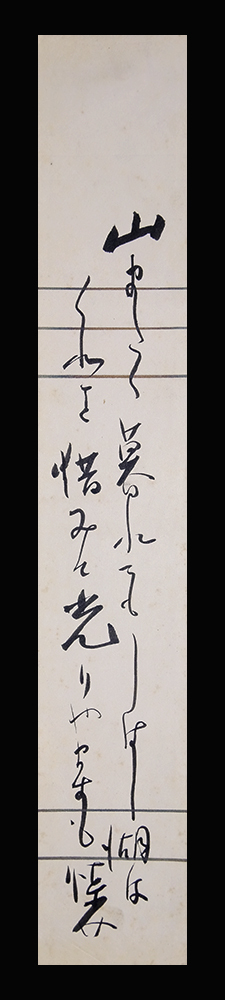 山まるく暮れてもしばし湖は
くれを惜みて光りやまずも